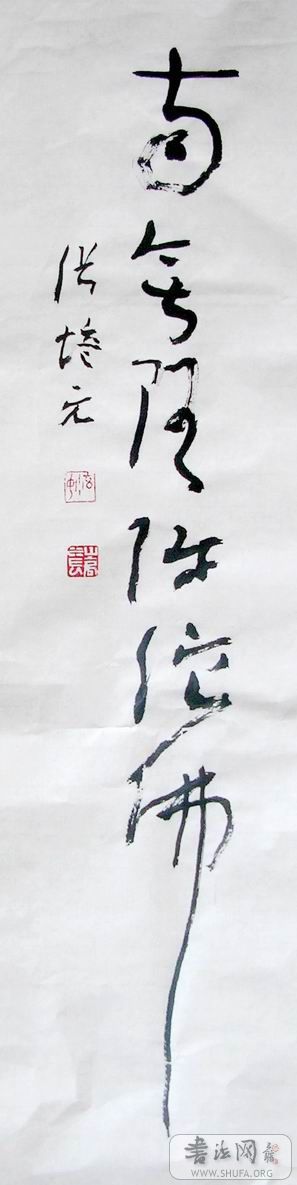 南无阿弥陀佛
张培元
书法网
WWW.SHUFA.ORG